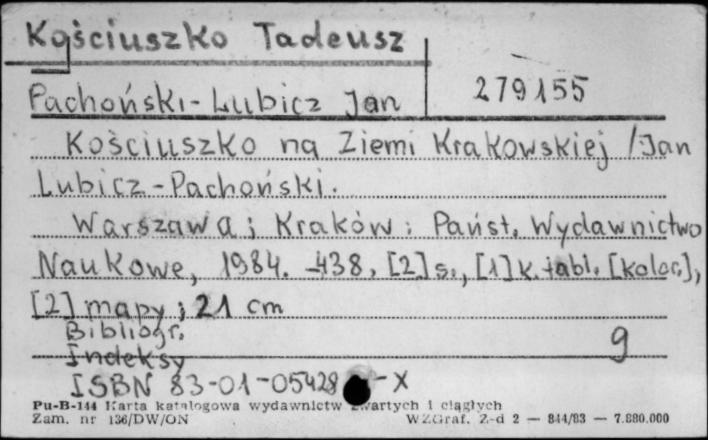 Kościuszko Tadeusz
Pachoński-Lubicz Jan
279155
Kościuszko na Ziemi Krakowskiej / Jan
Lubicz-Pachoński.
Warszawa ; Kraków : Państ. Wydawnictwo
Naukowe, 1984. -438, [2] s., [1] k. tabl. [kolor.],
[2] mapy ; 21 cm
Bibliogr.
g
Indeksy
ISBN 83-01-05428-X
Pu-B-144 Karta katalogowa wydawnictw zwartych i ciągłych
Zam. nr 136/DW/ON WZGraf. Z-d 2 — 844/83 — 7.880.000